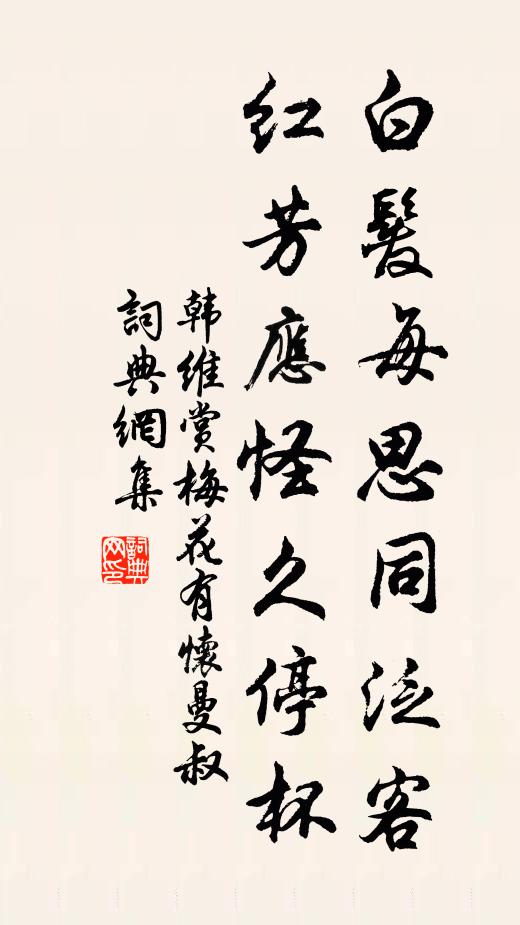 白髮每思同泛客
紅芳應怪久停杯
韩維賞梅花有懷曼叔
詞典網集
詞典網印